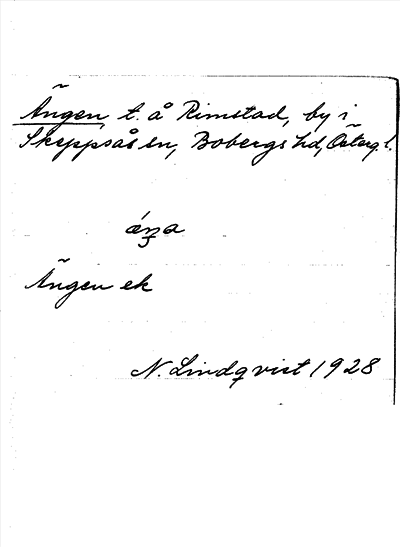 Ängen t. å Rimstad, by i
Skeppsås sn, Bobergs hd, Österg. l.
Ängen ek
N. Lindqvist 1928